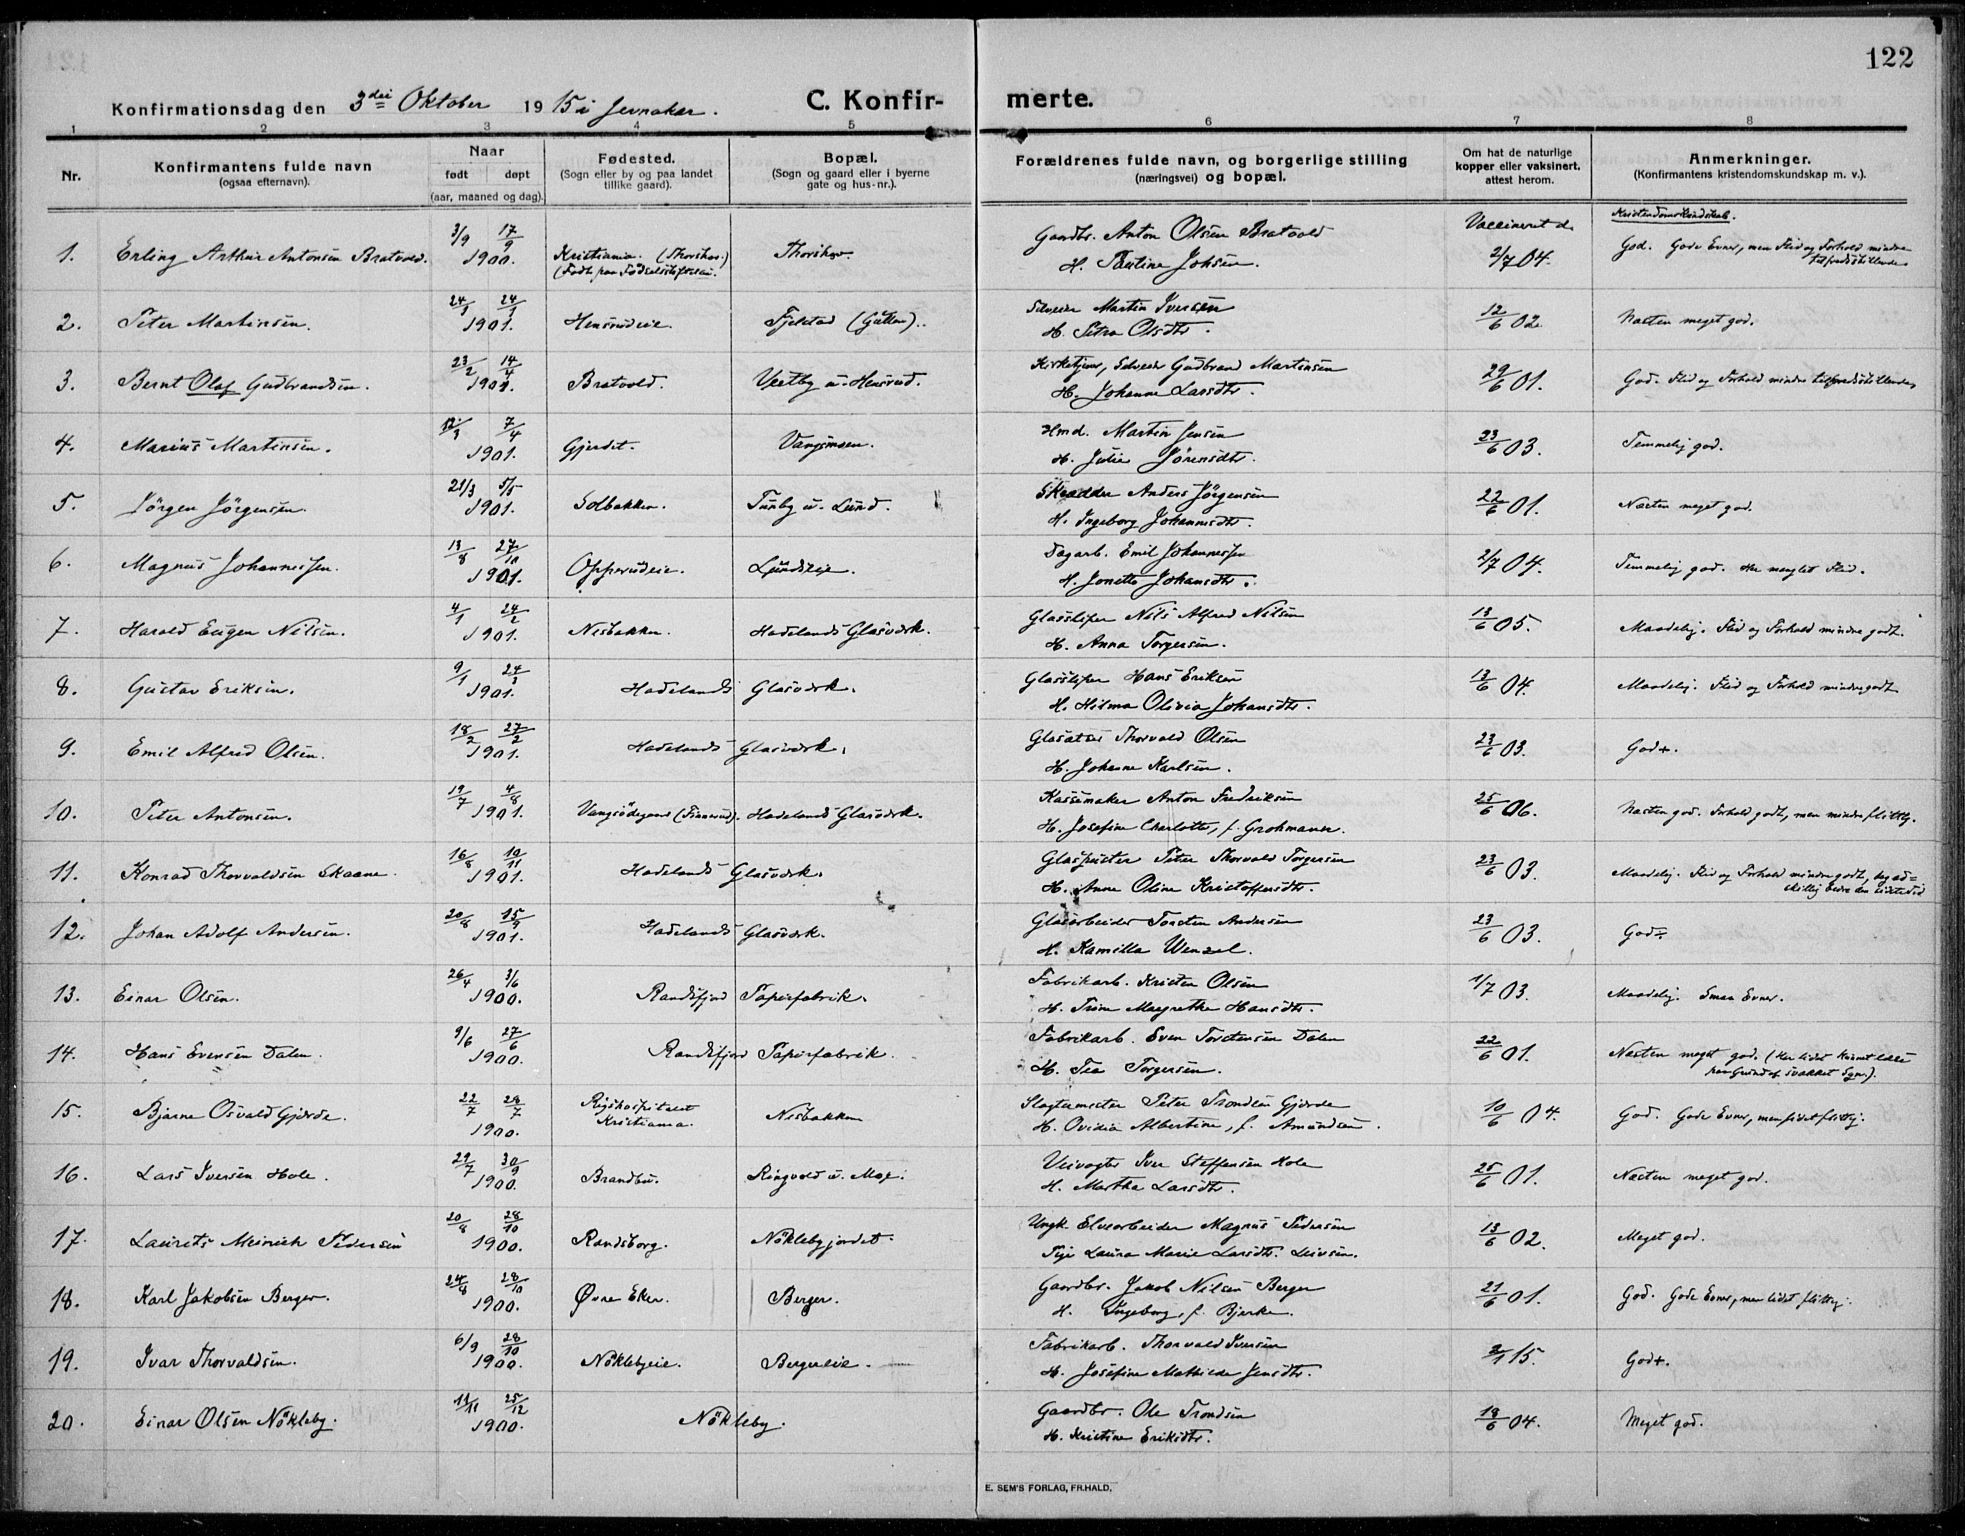 122
Konfirmationsdag den 3die Oktober 1915 i Jevnaker. C. Konfir- merte.
1 2 3 4 5 6 7 8
Nr. Konfirmantens fulde navn (ogsaa efternavn). Naar født døpt (aar, maaned og dag). Fødested. (Sogn eller by og paa landet tillike gaard). Bopæl. (Sogn og gaard eller i byerne gate og hus-nr.). Forældrenes fulde navn, og borgerlige stilling (næringsvei) og bopæl. Om hat de naturlige kopper eller vaksinert, attest herom. Anmerkninger. (Konfirmantens kristendomskundskap m. v.).
Kristendomskundskab.
1. Erling Arthur Antonsen Bratvold. 3/9 17/9 1900. Kristiania. (Thorshov.) (Født paa Fødselsstiftelsen. Thorshov. Gaardbr. Anton Olsen Bratvold Vaccineret d. 2/7 04. God. Gode Evner, men Flid og Forhold mindre tilfredsstillende
H. Pauline Johsen.
2. Peter Martinsen. 24/1 24/3 1901. Hensrudeie. Fjelstad (Gullen).. Selveier Martin Iversen 12/6 02. Næsten meget god.
H. Petra Olsdtr.
3. Bernt Olaf Gudbrandsen. 23/2 14/4 1901. Bratvold. Vestby u. Hensrud. Kirketjener, Selveier Gudbrand Martinsen 29/6 01. God. Flid og Forhold mindre tilfredsstillende
H. Johanne Larsdtr.
4. Marius Martinsen. 12/3 7/4 1901. Gjerdet. Vangsmoen. Hmd. Martin Jensen 23/6 03. Temmelig god.
H. Julie Sörensdtr.
5. Jörgen Jörgensen. 21/3 5/5 1901. Solbakken. Tunby u. Lund. Skrædder Anders Jörgensen 22/6 01. Næsten meget god.
H. Ingeborg Johannesdtr.
6. Magnus Johannessen. 13/8 27/10 1901. Opperudeie. Lundseie. Dagarb. Emil Johannessen 2/7 04. Temmelig god. Har manglet Flid.
H. Jonette Johansdtr.
7. Harald Eugen Nilsen. 4/1 24/2 1901. Nesbakken. Hadelands Glasværk. Glassliper Nils Alfred Nilsen 13/6 05. Maadelig. Flid og Forhold mindre godt.
H. Anna Torgersen.
8. Gustav Eriksen. 9/1 24/3 1901. Hadelands Glasværk. Glassliper Hans Eriksen 13/6 04. Maadelig. Flid og Forhold mindre godt
H. Hilma Olivia Johansdtr.
9. Emil Alfred Olsen. 18/2 27/2 1901. Hadelands Glasværk. Glasætser Thorvald Olsen 23/6 03. God+.
H. Johanne Karlsen.
10. Peter Antonsen. 19/7 4/8 1901. Vangsödegaard (Finnerud). Hadelands Glasværk. Kassemaker Anton Fredriksen 25/6 06. Næsten god. Forhold godt, men mindre flittig.
H. Josefine Charlotte, f. Grohmaner.
11. Konrad Thorvaldsen Skaane. 16/8 10/11 1901. Hadelands Glasværk. Glaspuster Peter Thorvald Torgersen 23/6 03. Maadelig. Flid og Forhold mindre godt, dog ad= skillig bedre den sidste tid
H. Anne Oline Kristoffersdtr.
12. Johan Adolf Andersen. 20/8 15/9 1901. Hadelands Glasværk. Glasarbeider Torsten Andersen 23/6 03. God÷
H. Kamilla Wenzel.
13. Einar Olsen. 26/4 3/6 1900. Randsfjord Papirfabrik. Fabrikarb. Kristen Olsen 1/7 03. Maadelig. Smaa Evner.
H. Trine Magrethe Hansdtr.
14. Hans Evensen Dalen. 9/6 27/6 1900. Randsfjord Papirfabrik. Fabrikarb. Even Torstensen Dalen 22/6 01. Næsten meget god. (Har lidet kunnet læse paa Grund af svækket Syn.).
H. Tea Torgersen.
15. Bjarne Osvald Gjerde. 22/7 28/7 1900. Rigshospitalet Kristiania. Nesbakken Slagtermester Peter Trondsen Gjerde 10/6 04. God. Gode Evner, men lidet flittig.
H. Ovidia Albertine, f. Amundsen.
16. Lars Iversen Hole. 29/7 30/9 1900. Brandbu. Ringvold u. Moe. Veivogter Iver Steffensen Hole 25/6 01. Næsten meget god.
H. Martha Larsdtr.
17. Laurits Meinich Pedersen 20/8 28/10 1900. Randsborg. Nöklebyjordet. Ungk. Elvearbeider Magnus Pedersen 13/6 02. Meget god.
Pige Laura Marie Larsdtr. Leivsen.
18. Karl Jakobsen Berger. 24/8 28/10 1900. Øvre Eker. Berger. Gaardbr. Jakob Nilsen Berger 21/6 01. God. Gode Evner, men lidet flittig.
H. Ingeborg, f. Bjerke.
19. Ivar Thorvaldsen. 6/9 28/10 1900. Nöklebyeie. Bergereie. Fabrikarb. Thorvald Iversen 2/1 15. God+.
H. Josefine Mathilde Jensdtr.
20. Einar Olsen Nökleby. 11/11 25/12 1900. Nökleby. Gaardbr. Ole Trondsen 18/6 04. Meget god.
H. Kristine Eriksdtr.
E. SEM'S FORLAG, FR.HALD.